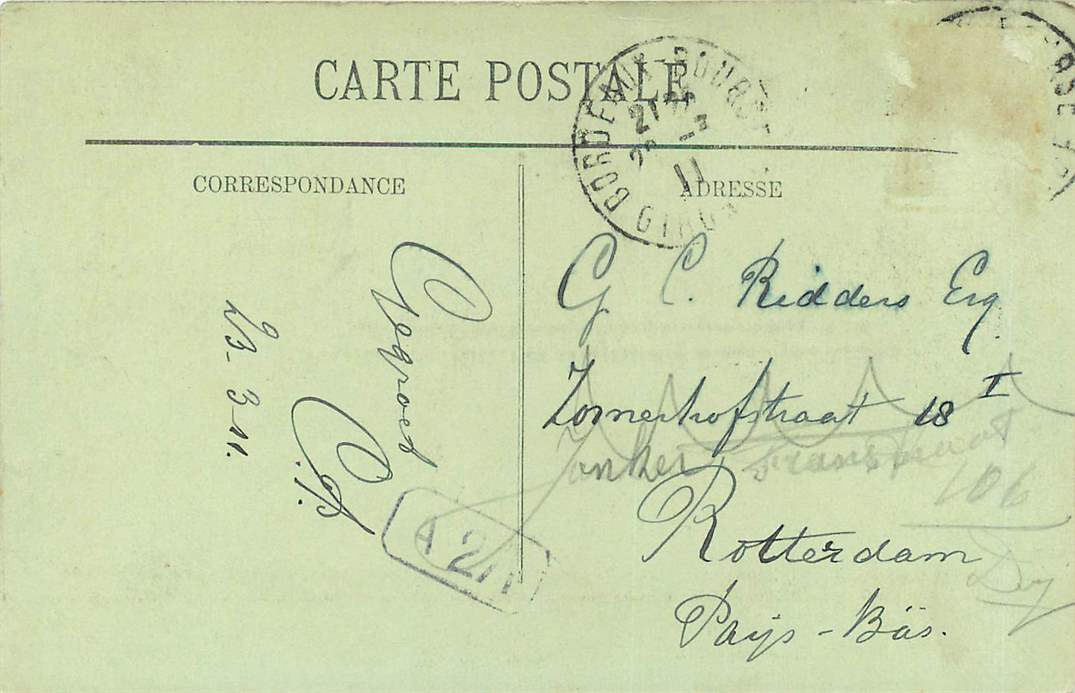 CARTE POSTALE
BORDEAUX BOURSE
21
23 -3
11
GIRONDE
CORRESPONDANCE
ADRESSE
23-3-11.
Gegroet
C.B.
G C. Ridders Esq.
Zomerhofstraat 18 I
Jonker Fransstraat
106
Rotterdam
Pays-Bas.
A 2